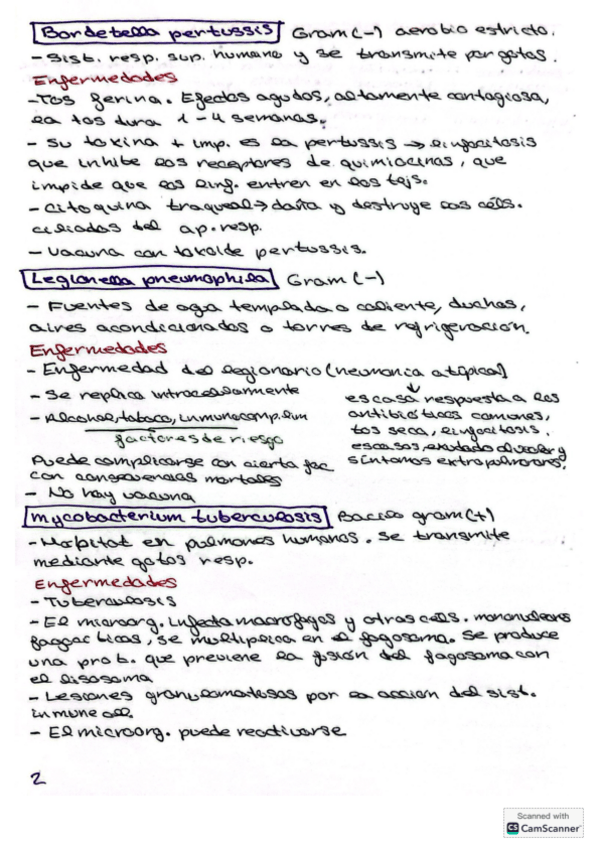 Bordetella pertussis Gram (-) aerobio estricto.
- Sist. resp. sup. humano y se transmite por gotas.
Enfermedades
- Tos ferina. Efectos agudos, altamente contagiosa,
la tos dura 1-4 semanas.
- Su toxina + imp. es la pertussis → linfocitosis
que inhibe los receptores de quimiocinas, que
impide que los linf. entren en los tejs.
- Citoquina traqueal → daña y destruye las céls.
ciliadas del ap. resp.
- Vacuna con toxoide pertussis.
Legionella pneumophila Gram (-)
- Fuentes de agua templada o caliente, duchas,
aires acondicionados o torres de refrigeración.
Enfermedades
- Enfermedad del legionario (neumonía atípica)
- Se replica intracelularmente
- Alcohol, tabaco, inmunocomp. son
factores de riesgo
Puede complicarse con cierta fec
con consecuencias mortales
- No hay vacuna
↓
escasa respuesta a los
antibióticos comunes,
tos seca, linfocitosis,
escasos, exudado alveolar y
síntomas extrapulmonares.
mycobacterium tuberculosis Bacilo gram (+)
- Hábitat en pulmones humanos. Se transmite
mediante gotas resp.
Enfermedades
- Tuberculosis
- El microorg. infecta macrófagos y otras céls. mononucleares
fagocíticas, se multiplica en el fagosoma. Se produce
una prob. que previene la fusión del fagosoma con
el lisosoma
- Lesiones granulomatosas por la acción del sist.
inmune cel.
- El microorg. puede reactivarse
2
Scanned with
CS CamScanner